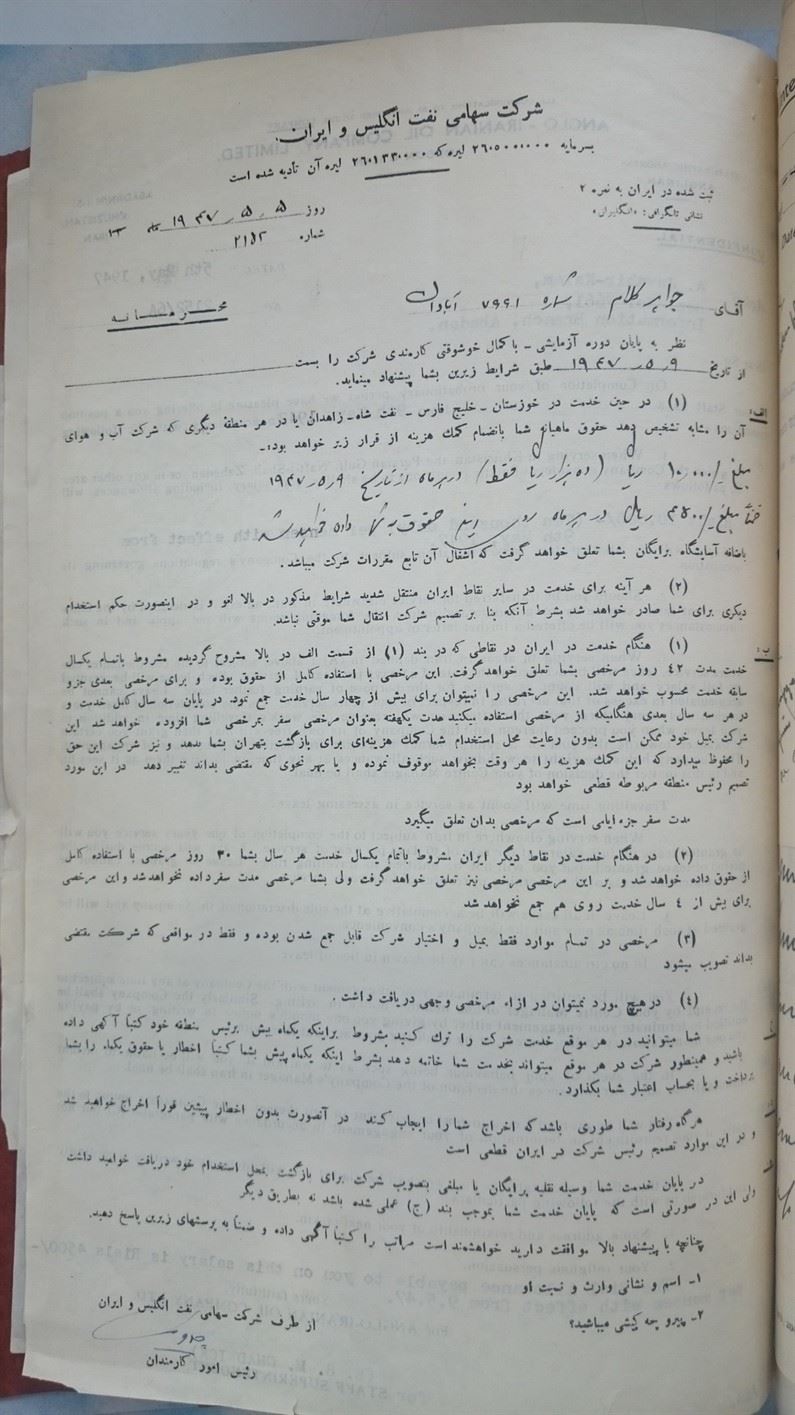 شرکت سهامی نفت انگلیس و ایران.
بسرمایه ۲۶۰۵۰۰۰۰۰۰ لیره که ۲۶۰۱۳۳۰۰۰۰ لیره آن تأدیه شده است
ثبت شده در ایران به نمره ۲
نشانی تلگرافی: «انگلیران»
روز ۵ـ۵ـ۱۹۴۷ ماه
شماره ۲۱۵۲
آقای جواهر کلام شماره ۷۹۹۱ آبادان
محرمانه
نظر به پایان دوره آزمایشی ـ با کمال خوشوقتی کارمندی شرکت را بسمت
از تاریخ ۹ـ۵ـ۱۹۴۷ طبق شرایط زیرین بشما پیشنهاد مینماید.
الف: (۱) در حین خدمت در خوزستان ـ خلیج فارس ـ نفت شاه ـ زاهدان یا در هر منطقهٔ دیگری که شرکت آب و هوای
آن را مشابه تشخیص دهد حقوق ماهیانه شما بانضمام کمک هزینه از قرار زیر خواهد بود:ـ
مبلغ ۱۰٫۰۰۰/ـ ریال (ده هزار ریال فقط) در هر ماه از تاریخ ۹ـ۵ـ۱۹۴۷
ضمناً مبلغ ۴۵۰۰/ـ ریال در هر ماه روی این حقوق به شما داده خواهد شد
باضافه آسایشگاه برایگان بشما تعلق خواهد گرفت که اشغال آن تابع مقررات شرکت میباشد.
(۲) هر آینه برای خدمت در سایر نقاط ایران منتقل شدید شرایط مذکور در بالا لغو و در اینصورت حکم استخدام
دیگری برای شما صادر خواهد شد بشرط آنکه بنا بر تصمیم شرکت انتقال شما موقتی نباشد.
ب: (۱) هنگام خدمت در ایران در نقاطی که در بند (۱) از قسمت الف در بالا مشروح گردیده مشروط باتمام یکسال
خدمت مدت ۴۲ روز مرخصی بشما تعلق خواهد گرفت. این مرخصی با استفاده کامل از حقوق بوده و برای مرخصی بعدی جزو
سابقه خدمت محسوب خواهد شد. این مرخصی را نمیتوان برای بیش از چهار سال خدمت جمع نمود. در پایان سه سال کامل خدمت و
در هر سه سال بعدی هنگامیکه از مرخصی استفاده میکنید مدت یکهفته بعنوان مرخصی سفر بمرخصی شما افزوده خواهد شد این
شرکت بمیل خود ممکن است بدون رعایت محل استخدام شما کمک هزینه‌ای برای بازگشت بتهران بشما بدهد و نیز شرکت این حق
را محفوظ میدارد که این کمک هزینه را هر وقت بخواهد موقوف نموده و یا بهر نحوی که مقتضی بداند تغییر دهد در این مورد
تصمیم رئیس منطقه مربوطه قطعی خواهد بود
مدت سفر جزء ایامی است که مرخصی بدان تعلق میگیرد
(۲) در هنگام خدمت در نقاط دیگر ایران مشروط باتمام یکسال خدمت هر سال بشما ۳۰ روز مرخصی با استفاده کامل
از حقوق داده خواهد شد و بر این مرخصی مرخصی نیز تعلق خواهد گرفت ولی بشما مرخصی مدت سفر داده نخواهد شد و این مرخصی
برای بیش از ۴ سال خدمت روی هم جمع نخواهد شد
(۳) مرخصی در تمام موارد فقط بمیل و اختیار شرکت قابل جمع شدن بوده و فقط در مواقعی که شرکت مقتضی
بداند تصویب میشود
(۴) در هیچ مورد نمیتوان در ازاء مرخصی وجهی دریافت داشت.
شما میتوانید در هر موقع خدمت شرکت را ترک کنید بشروط براینکه یکماه پیش برئیس منطقه خود کتباً آگهی داده
باشید و همینطور شرکت در هر موقع میتواند بخدمت شما خاتمه دهد بشرط اینکه یکماه پیش بشما کتباً اخطار یا حقوق یکماه را بشما
پرداخت و یا بحساب اعتبار شما بگذارد.
هرگاه رفتار شما طوری باشد که اخراج شما را ایجاب کند در آنصورت بدون اخطار پیشین فوراً اخراج خواهید شد
و در این موارد تصمیم رئیس شرکت در ایران قطعی است
در پایان خدمت شما وسیله نقلیه برایگان یا مبلغی بتصویب شرکت برای بازگشت بمحل استخدام خود دریافت خواهید داشت
ولی این در صورتی است که پایان خدمت شما بموجب بند (ج) عملی شده باشد نه بطریق دیگر
چنانچه با پیشنهاد بالا موافقت دارید خواهشمند است مراتب را کتباً آگهی داده و ضمناً به پرسشهای زیرین پاسخ دهید.
۱ـ اسم و نشانی وارث و نسبت او
۲ـ پیرو چه کیشی میباشید؟
از طرف شرکت سهامی نفت انگلیس و ایران
رئیس امور کارمندان